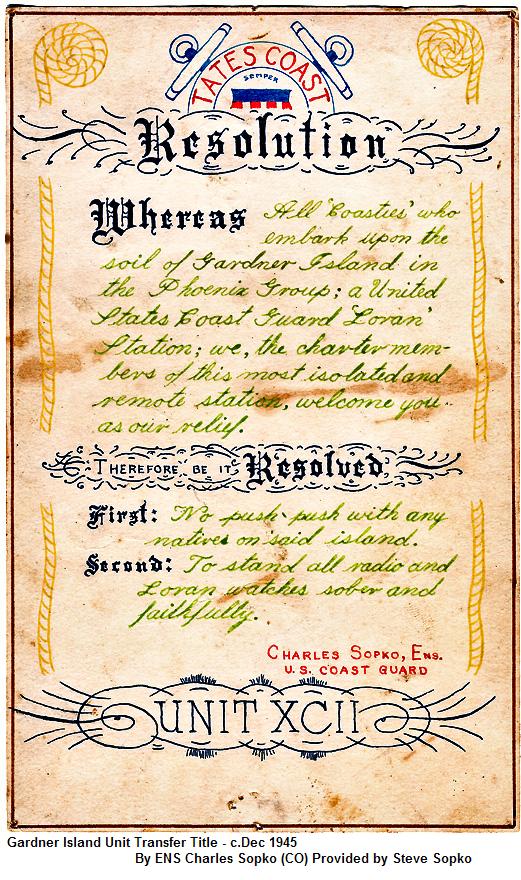 TATES COAST
SEMPER
Resolution
Whereas All 'Coasties' who
embark upon the
soil of Gardner Island in
the Phoenix Group; a United
States Coast Guard 'Loran'
Station; we, the charter mem-
bers of this most isolated and
remote station, welcome you
as our relief.
THEREFORE, BE IT Resolved
First: No push-push with any
natives on said island.
Second: To stand all radio and
Loran watches sober and
faithfully.
CHARLES SOPKO, ENS.
U.S. COAST GUARD
UNIT XCII
Gardner Island Unit Transfer Title - c.Dec 1945
By ENS Charles Sopko (CO) Provided by Steve Sopko